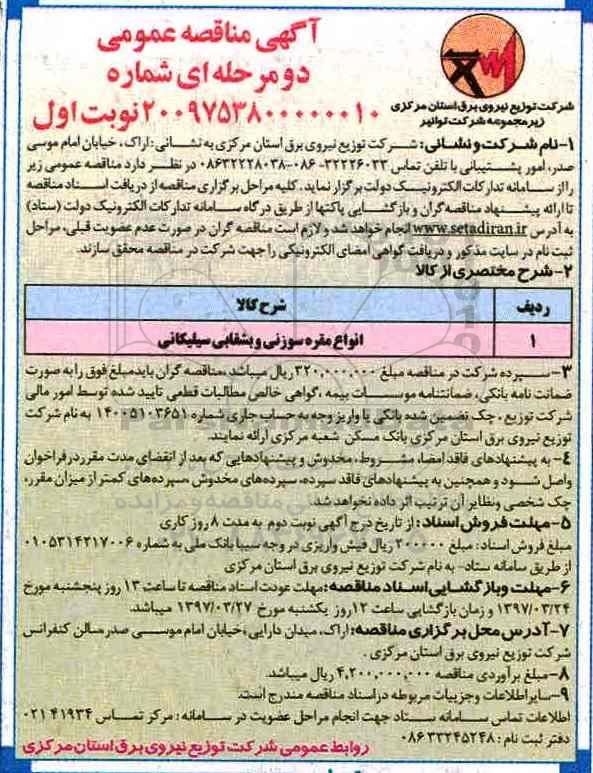 آگهی مناقصه عمومی
دو مرحله ای شماره
۲۰۰۹۷۵۳۸۰۰۰۰۰۰۱۰ نوبت اول
شرکت توزیع نیروی برق استان مرکزی
زیر مجموعه شرکت توانیر
۱- نام شرکت و نشانی: شرکت توزیع نیروی برق استان مرکزی به نشانی: اراک، خیابان امام موسی
صدر، امور پشتیبانی با تلفن تماس ۳۲۲۲۶۰۳۳-۰۸۶ -۰۸۶۳۲۲۲۸۰۳۸ در نظر دارد مناقصه عمومی زیر
را از سامانه تدارکات الکترونیک دولت برگزار نماید. کلیه مراحل برگزاری مناقصه از دریافت اسناد مناقصه
تا ارائه پیشنهاد مناقصه گران و بازگشایی پاکتها از طریق درگاه سامانه تدارکات الکترونیک دولت (ستاد)
به آدرس www.setadiran.ir انجام خواهد شد و لازم است مناقصه گران در صورت عدم عضویت قبلی، مراحل
ثبت نام در سایت مذکور و دریافت گواهی امضای الکترونیکی را جهت شرکت در مناقصه محقق سازند.
۲- شرح مختصری از کالا
ردیف شرح کالا
۱ انواع مقره سوزنی و بشقابی سیلیکانی
۳- سپرده شرکت در مناقصه مبلغ ۳۲۰,۰۰۰,۰۰۰ ریال میباشد ،مناقصه گران باید مبلغ فوق را به صورت
ضمانت نامه بانکی، ضمانتنامه موسسات بیمه ،گواهی خالص مطالبات قطعی تایید شده توسط امور مالی
شرکت توزیع ، چک تضمین شده بانکی یا واریز وجه به حساب جاری شماره ۱۴۰۰۵۱۰۳۶۵۱ به نام شرکت
توزیع نیروی برق استان مرکزی بانک مسکن شعبه مرکزی ارائه نمایند.
۴- به پیشنهادهای فاقد امضا، مشروط، مخدوش و پیشنهادهایی که بعد از انقضای مدت مقرر در فراخوان
واصل شود و همچنین به پیشنهادهای فاقد سپرده، سپرده‌های مخدوش ،سپرده‌های کمتر از میزان مقرر،
چک شخصی و نظایر آن ترتیب اثر داده نخواهد شد.
۵- مهلت فروش اسناد: از تاریخ درج آگهی نوبت دوم به مدت ۸ روز کاری
مبلغ فروش اسناد: مبلغ ۲۰۰۰۰۰ ریال فیش واریزی در وجه سیبا بانک ملی به شماره ۰۱۰۵۳۱۴۲۱۷۰۰۶
از طریق سامانه ستاد- به نام شرکت توزیع نیروی برق استان مرکزی
۶- مهلت و بازگشایی اسناد مناقصه: مهلت عودت اسناد مناقصه تا ساعت ۱۳ روز پنجشنبه مورخ
۱۳۹۷/۰۳/۲۴ و زمان بازگشایی ساعت ۱۲ روز یکشنبه مورخ ۱۳۹۷/۰۳/۲۷ میباشد.
۷- آدرس محل برگزاری مناقصه: اراک، میدان دارایی،خیابان امام موسی صدر سالن کنفرانس
شرکت توزیع نیروی برق استان مرکزی .
۸- مبلغ برآوردی مناقصه ۴,۲۰۰,۰۰۰,۰۰۰ ریال میباشد.
۹- سایر اطلاعات و جزییات مربوطه در اسناد مناقصه مندرج است.
اطلاعات تماس سامانه ستاد جهت انجام مراحل عضویت در سامانه : مرکز تماس ۴۱۹۳۴ ۰۲۱
دفتر ثبت نام : ۳۳۲۴۵۲۴۸ ۰۸۶
روابط عمومی شرکت توزیع نیروی برق استان مرکزی